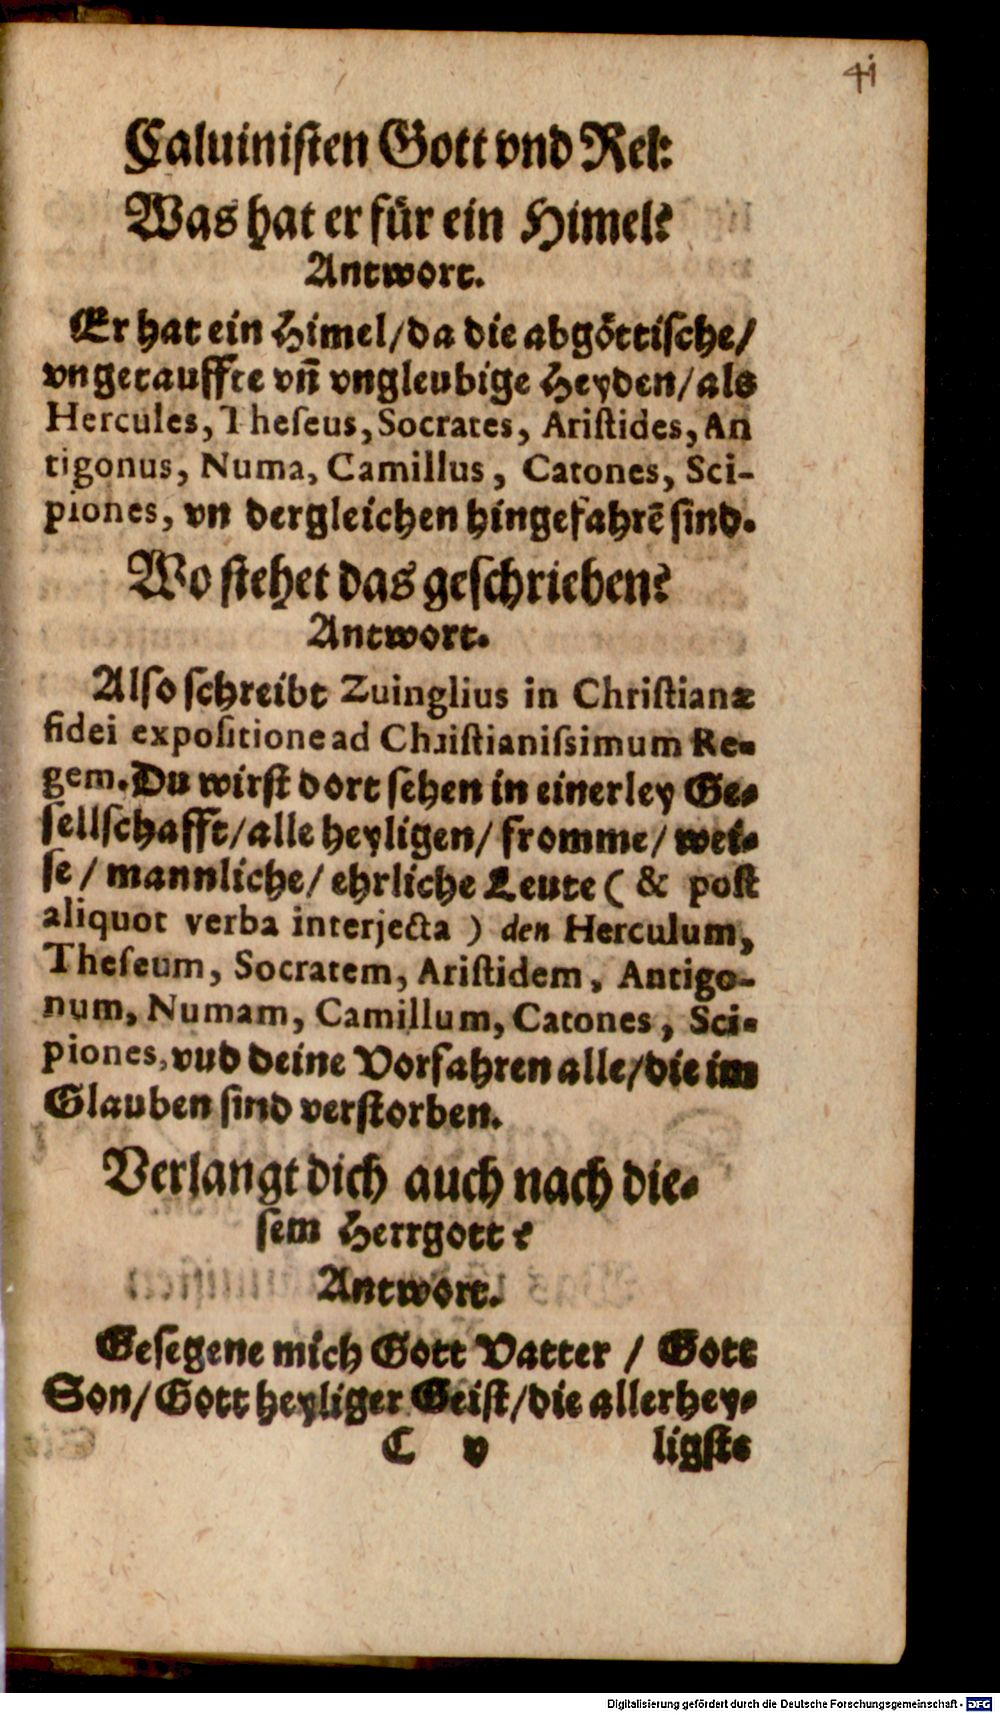 41
Caluinisten Gott vnd Rel:
Was hat er für ein Himel?
Antwort.
Er hat ein Himel/da die abgöttische/
vngetauffte vn̄ vngleubige Heyden/als
Hercules, Theseus, Socrates, Aristides, An
tigonus, Numa, Camillus, Catones, Sci-
piones, vn dergleichen hingefahrē sind.
Wo stehet das geschrieben?
Antwort.
Also schreibt Zuinglius in Christianæ
fidei expositione ad Christianissimum Re-
gem. Du wirst dort sehen in einerley Ge-
sellschafft/alle heyligen/ fromme/ wei-
se/ mannliche/ ehrliche Leute ( & post
aliquot verba interjecta ) den Herculum,
Theseum, Socratem, Aristidem, Antigo-
num, Numam, Camillum, Catones, Sci-
piones, vud deine Vorfahren alle/die im
Glauben sind verstorben.
Verlangt dich auch nach die-
sem Herrgott?
Antwort.
Gesegene mich Gott Vatter / Gott
Son/Gott heyliger Geist/die allerhey-
C v ligste
Digitalisierung gefördert durch die Deutsche Forschungsgemeinschaft - DFG